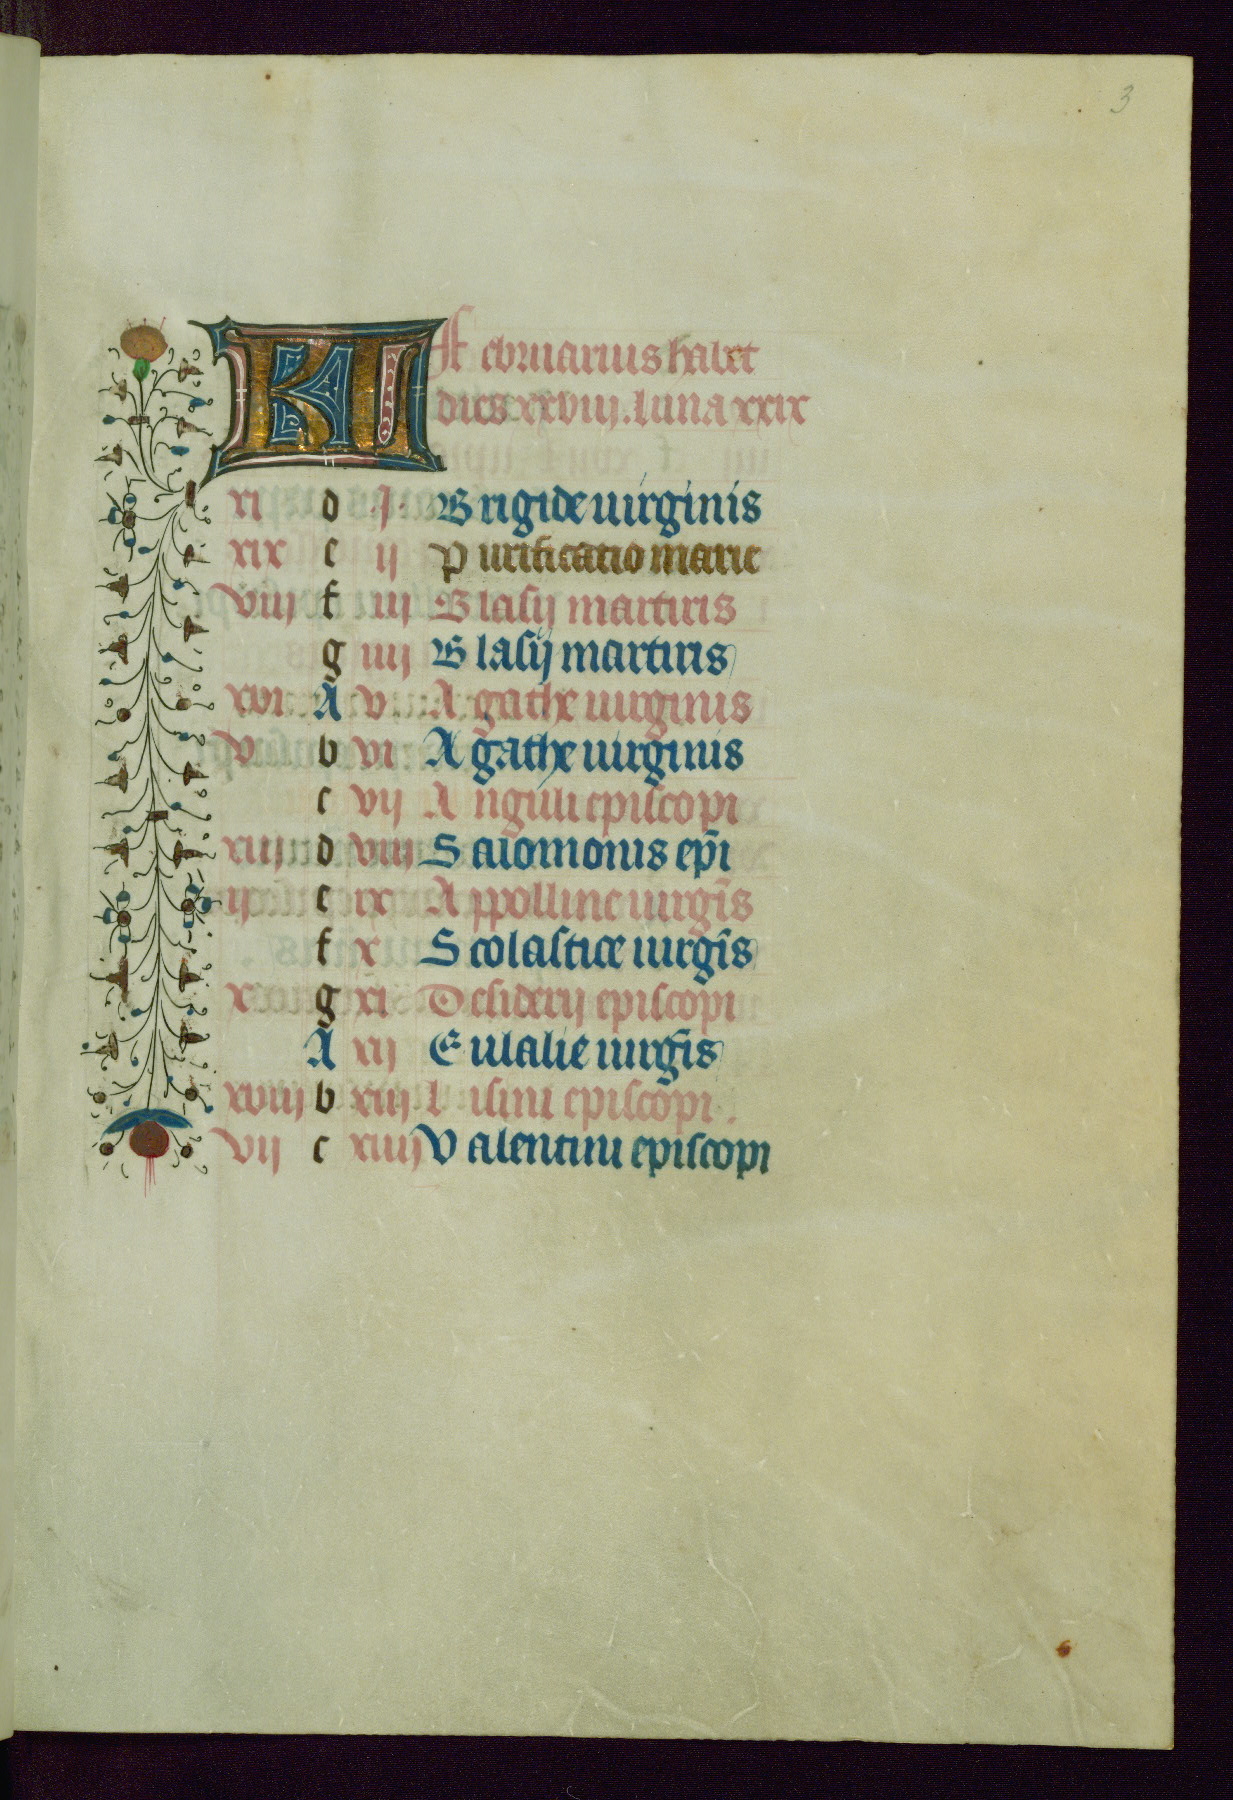 3
Kl Februarius habet
dies xxviij. luna xxix
xi d j Brigide uirginis
xix e ij Purificatio marie
viij f iij Blasij martiris
g iiij Blasij martiris
xvi A v Agathe uirginis
v b vi Agathe uirginis
c vij Anguli episcopi
xiij d viij Salomonis ep̄i
ij e ix Appolline uirgīs
f x Scolastice uirgīs
x g xi Desiderij episcopi
A xij Eulalie uirgīs
xviij b xiij Lisini episcopi.
vij c xiiij Valentini episcopi